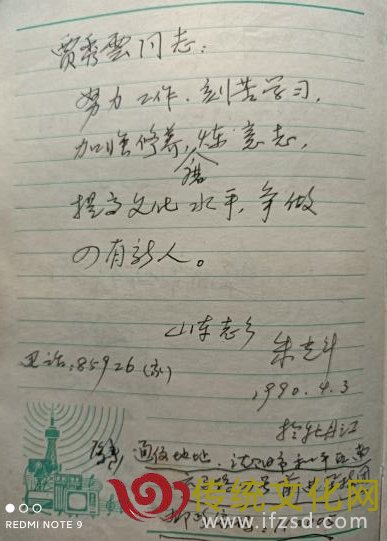 贾秀雲同志:
努力工作、刻苦学习,
加强修养,磨炼意志,
提高文化水平,争做
四有新人。
山东老乡
朱克斗
电话:85926(家)
1990.4.3
于牡丹江
通信地址:沈阳市和平区
传统文化网
www.ifzsd.com
REDMI NOTE 9